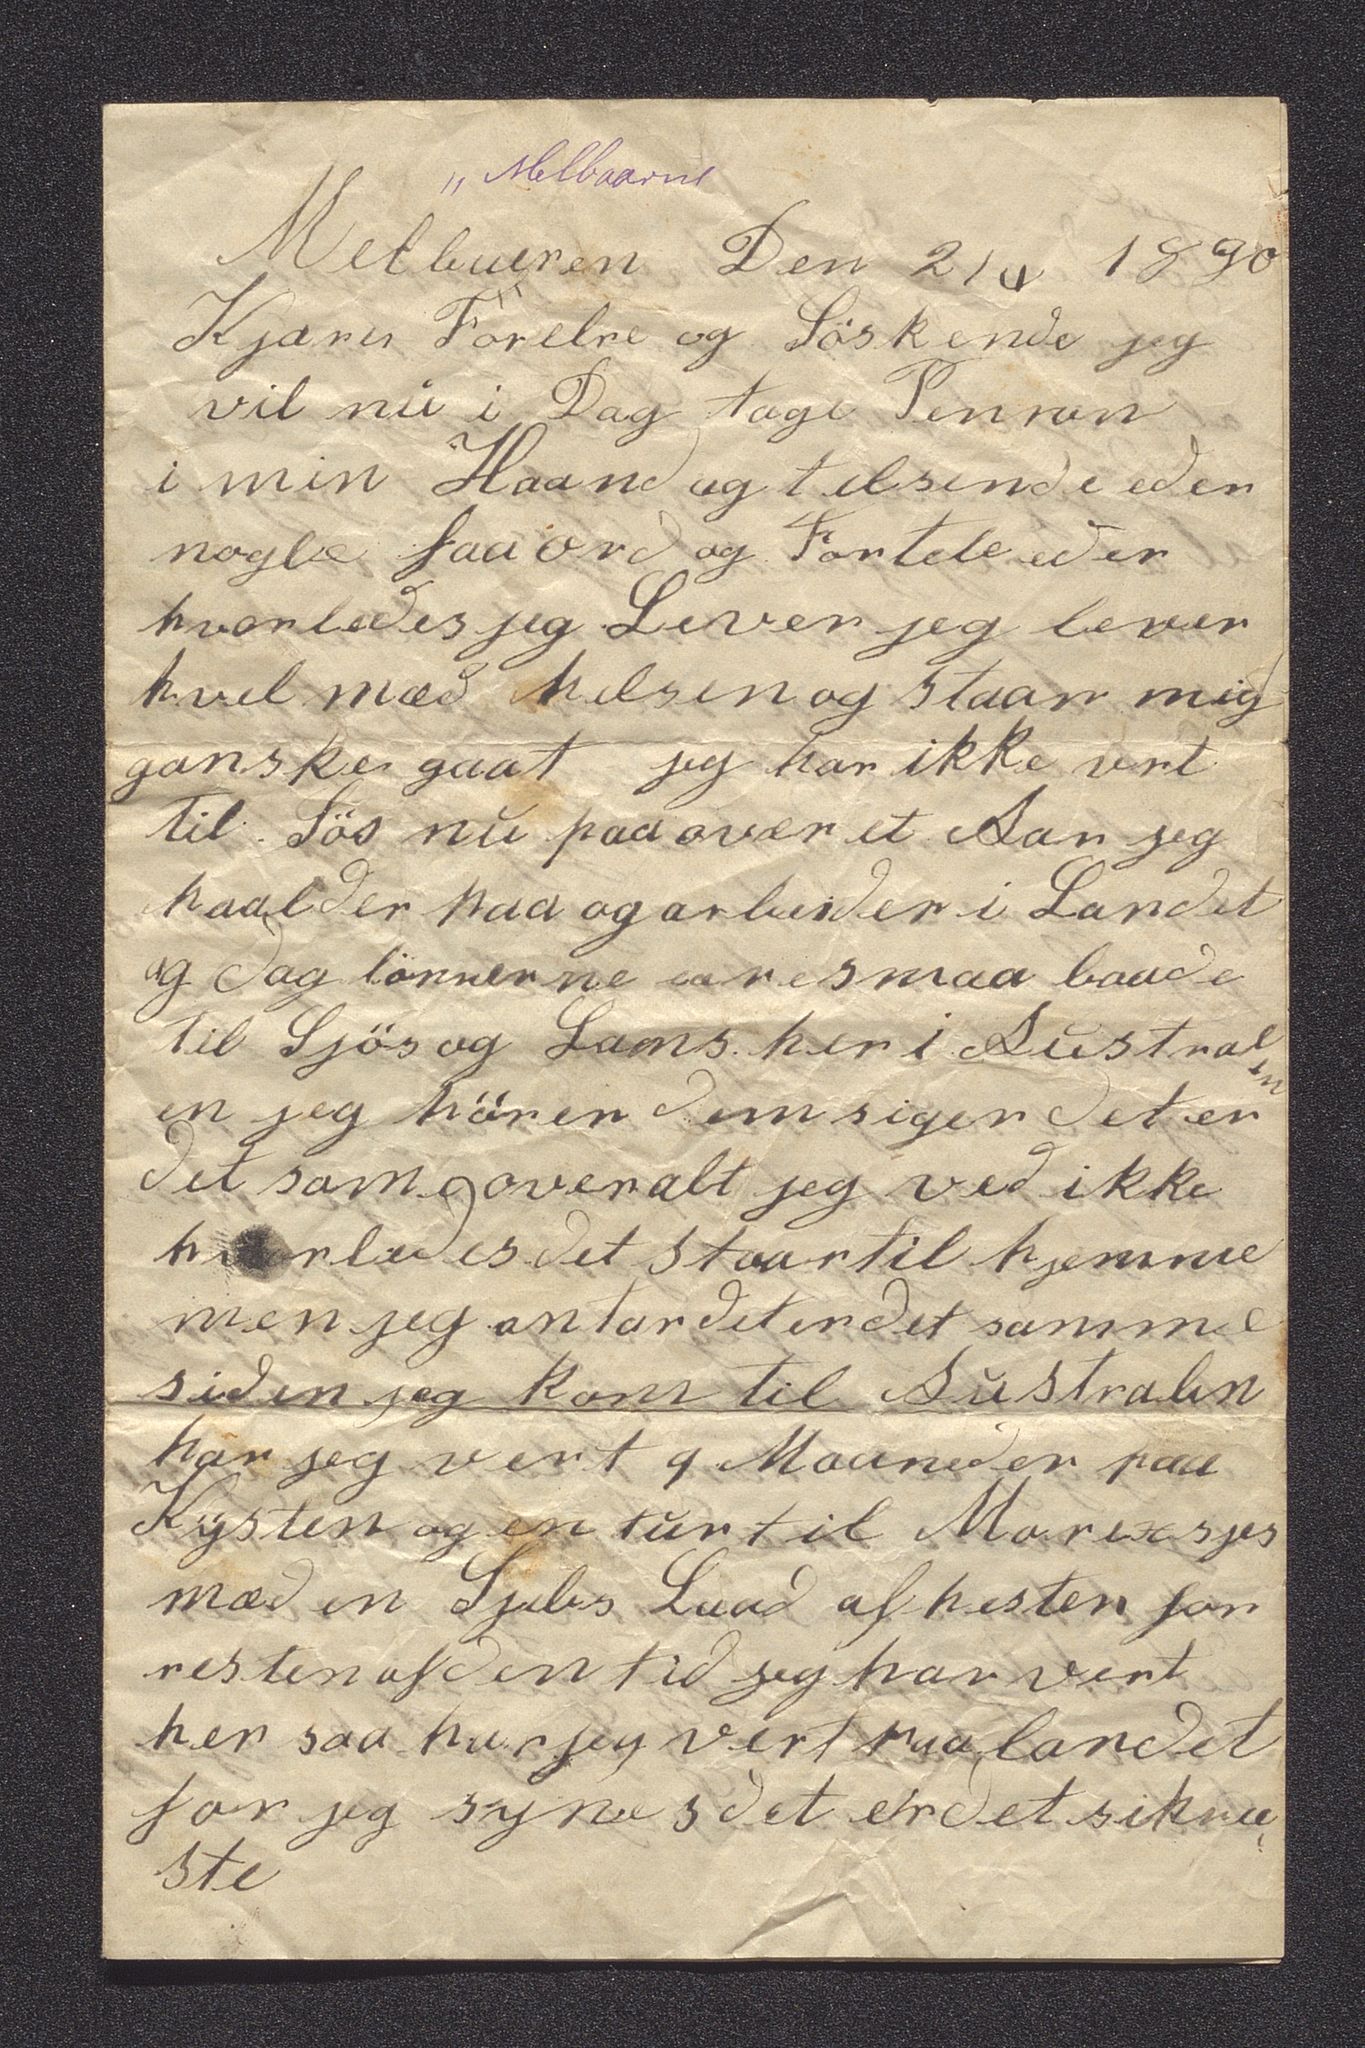 " Melbaarne
Melbueren Den 2/4 1890
Kjære Förelre og Söskende jeg
vil nu i Dag tage Pennan
i min Haand og tilsende eder
nogle faa ord og Fortele eder
hvorledes jeg Lever jeg lever
hvel mæd helsen og staar mig
ganske gaat jeg har ikke vert
til Sös nu paa over et Aar jeg
haalder paa og arbeider i Landet
og dag lönnerne er smaa baade
til Sjös og Lans her i Australen
en jeg hörer dem siger det er
det same overalt jeg ved ikke
hvorledes det staar til hjemme
men jeg antar det er det samme
siden jeg kom til Australen
har jeg vert 9 Maaneder paa
Kysten og en tur til Morexsjes
mæd en Sjebs Laad af hester for
resten af den tid jeg har vert
her saa har jeg vert paa landet
for jeg synes det er det sikre-
ste